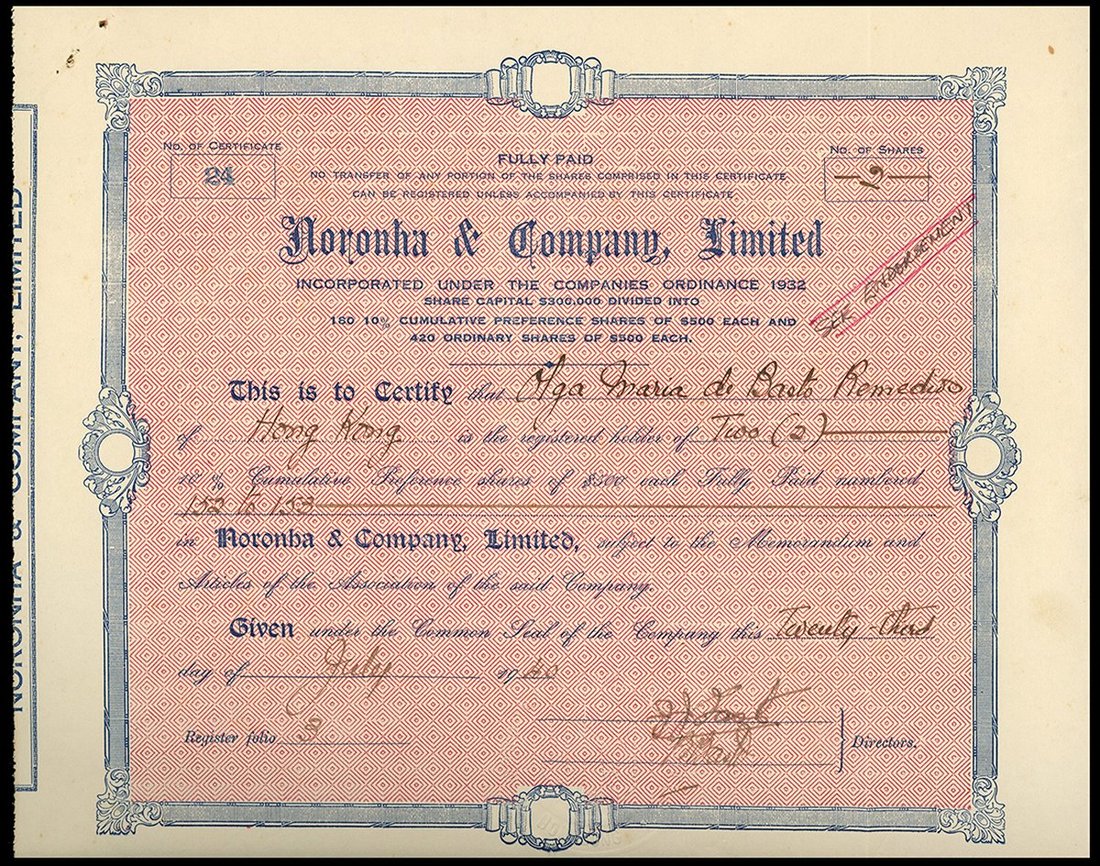 NORONHA & COMPANY, LIMITED
No. OF CERTIFICATE
24
No. OF SHARES
— 2 —
FULLY PAID
NO TRANSFER OF ANY PORTION OF THE SHARES COMPRISED IN THIS CERTIFICATE
CAN BE REGISTERED UNLESS ACCOMPANIED BY THIS CERTIFICATE
Noronha & Company, Limited
SEE ENDORSEMENT
INCORPORATED UNDER THE COMPANIES ORDINANCE 1932
SHARE CAPITAL $300,000 DIVIDED INTO
180 10% CUMULATIVE PREFERENCE SHARES OF $500 EACH AND
420 ORDINARY SHARES OF $500 EACH.
This is to Certify that Olga Maria de Basto Remedios
of Hong Kong is the registered holder of Two (2)
10% Cumulative Preference shares of $500 each Fully Paid numbered
152 to 153
in Noronha & Company, Limited, subject to the Memorandum and
Articles of the Association of the said Company.
Given under the Common Seal of the Company this Twenty-third
day of July 1940
Register folio 3
Directors.